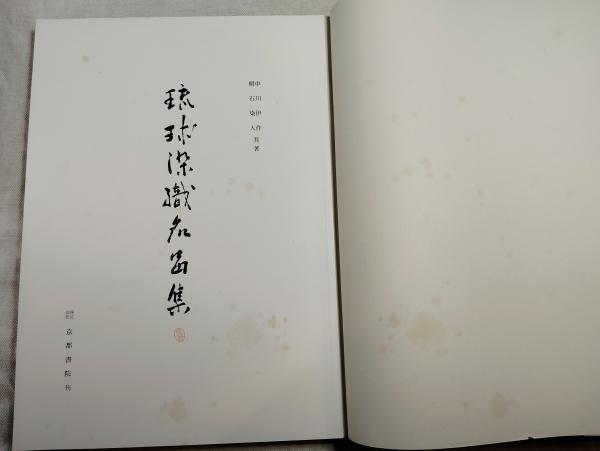 中川伊作
明石染人 共著
琉球染織名品集
株式会社 京都書院刊